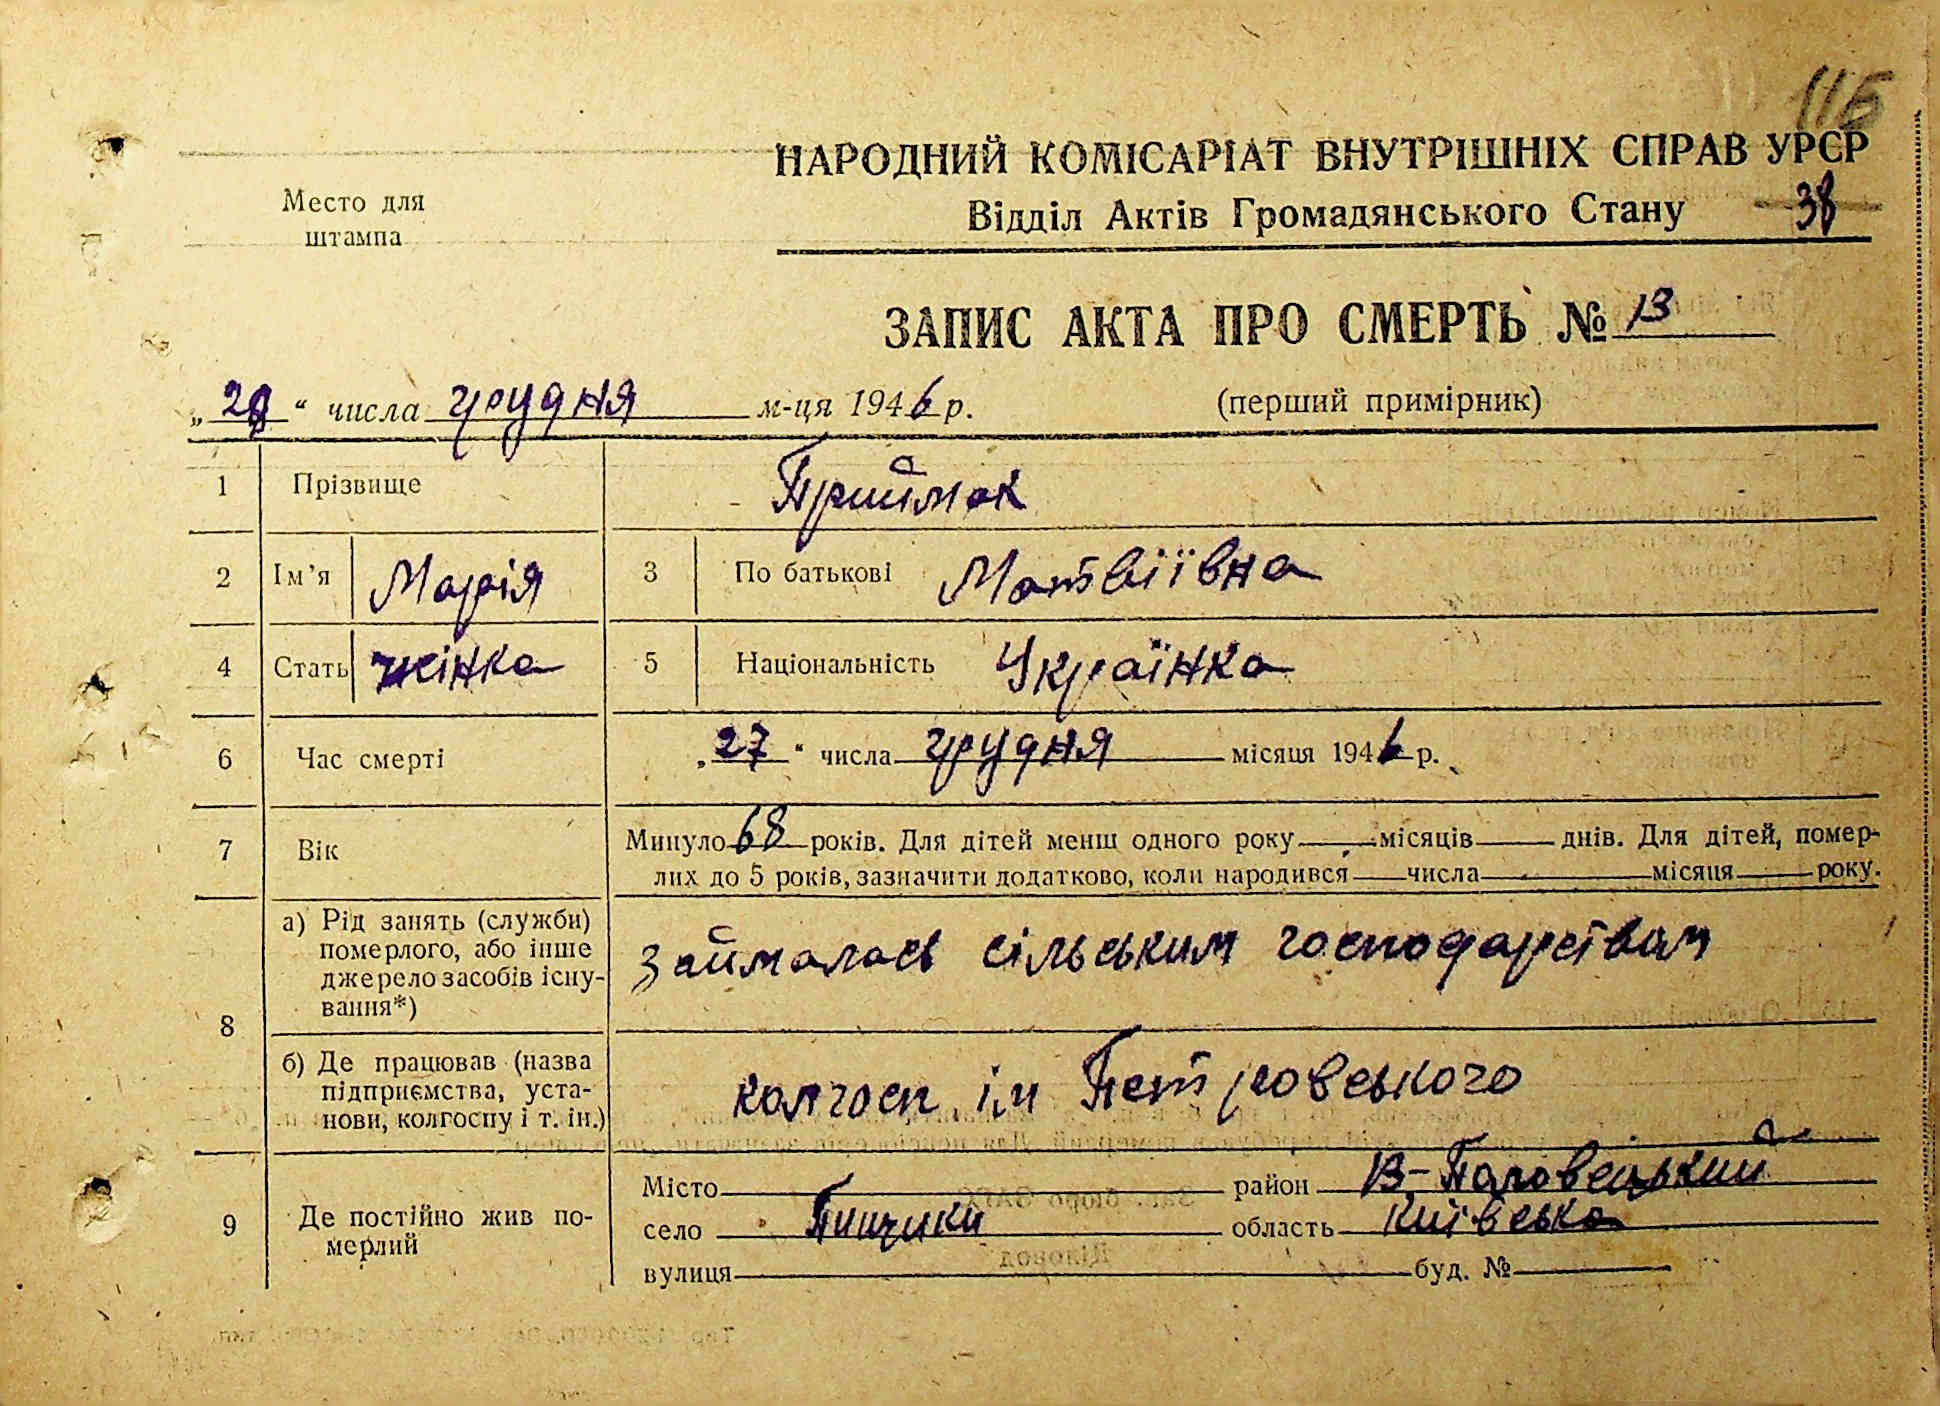 116
НАРОДНИЙ КОМІСАРІАТ ВНУТРІШНІХ СПРАВ УРСР
Место для штампа
Відділ Актів Громадянського Стану 38
ЗАПИС АКТА ПРО СМЕРТЬ № 13
„28“ числа грудня м-ця 1946 р. (перший примірник)
1 Прізвище Приймак
2 Ім’я Марія 3 По батькові Матвіївна
4 Стать жінка 5 Національність Українка
6 Час смерті „27“ числа грудня місяця 1946 р.
7 Вік Минуло 68 років. Для дітей менш одного року — місяців — днів. Для дітей, помер-
лих до 5 років, зазначити додатково, коли народився — числа — місяця — року.
8 а) Рід занять (служби)
померлого, або інше
джерело засобів існу-
вання*)
займалась сільським господарствам
б) Де працював (назва
підприємства, уста-
нови, колгоспу і т. ін.)
колгосп ім Петровського
9 Де постійно жив по-
мерлий
Місто район В-Половецький
село Пинчики область Київська
вулиця буд. №